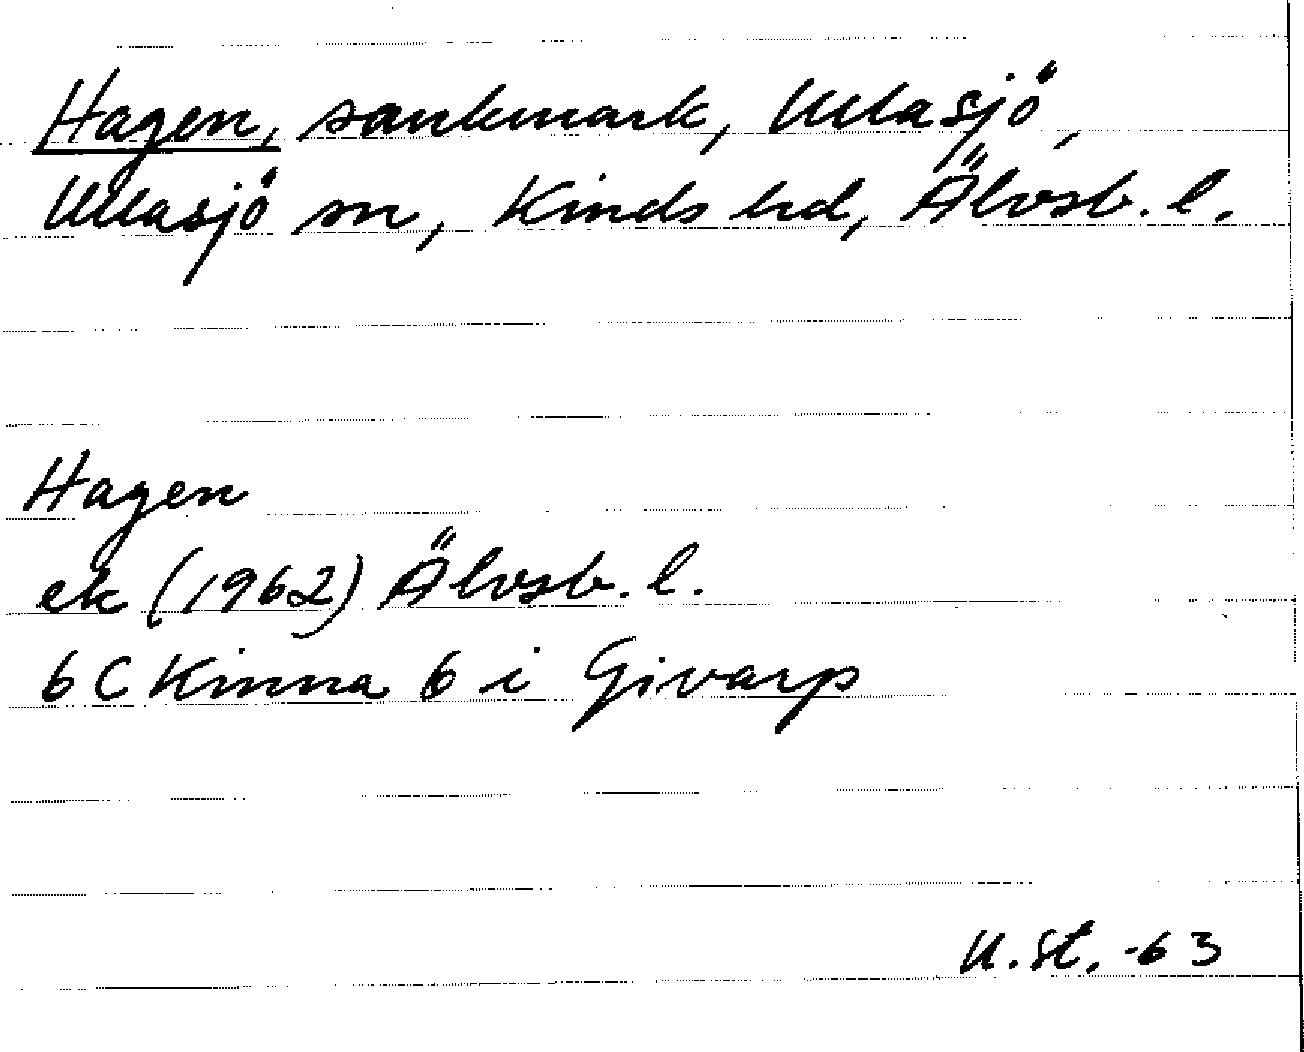 Hagen, sankmark, Ullasjö,
Ullasjö sn, Kinds hd, Älvsb. l.
Hagen
ek (1962) Älvsb. l.
6 C Kinna 6 i Givarp
U. St. -63